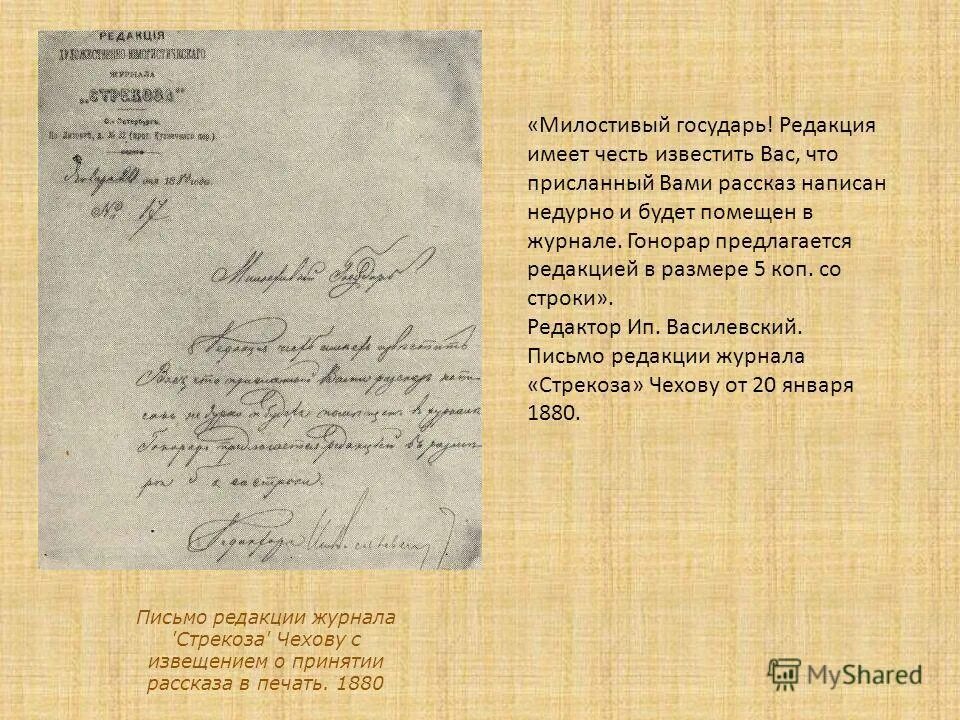 РЕДАКЦІЯ
ХУДОЖЕСТВЕННО-ЮМОРИСТИЧЕСКАГО
ЖУРНАЛА
„СТРЕКОЗА“
С.-Петербургъ.
Января 20 дня 1880 года
№ 17
Милостивый Государь
Редакція имѣетъ честь извѣстить
Васъ, что присланный Вами разсказъ напи-
санъ не дурно и будетъ помѣщенъ в журналѣ
Гонораръ предлагается редакціей въ размѣ-
рѣ 5 к. со строки.
Редакторъ
«Милостивый государь! Редакция
имеет честь известить Вас, что
присланный Вами рассказ написан
недурно и будет помещен в
журнале. Гонорар предлагается
редакцией в размере 5 коп. со
строки».
Редактор Ип. Василевский.
Письмо редакции журнала
«Стрекоза» Чехову от 20 января
1880.
Письмо редакции журнала
'Стрекоза' Чехову с
извещением о принятии
рассказа в печать. 1880
MyShared